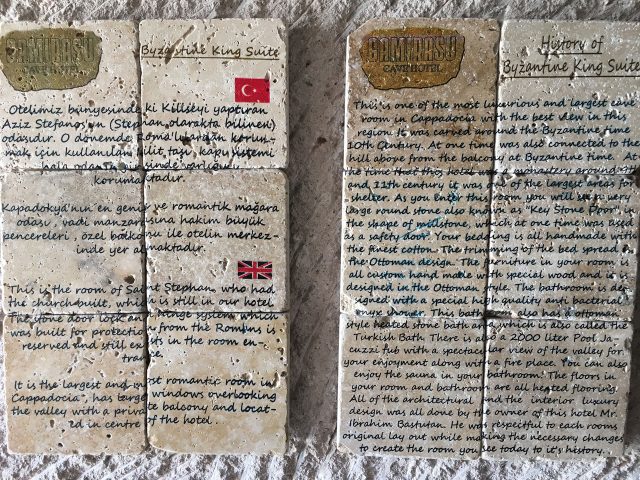 GAMIRASU
CAVE HOTEL
Byzantine King Suite
Otelimiz bünyesindeki Killseyi yaptıran
Aziz Stefanos'un (Stephan olarakta bilinen)
odasıdır. O dönemde Roma'lılardan korun-
mak için kullanılan kilit taşı, kapı sistemi
hala odanın girişinde varlığını
korumaktadır.
Kapadokya'nın en geniş ve romantik mağara
odası, vadi manzarasına hakim büyük
pencereleri, özel balkonu ile otelin merkez-
inde yer almaktadır.
"This is the room of Saint Stephan, who had
the church built, which is still in our hotel.
The stone door lock and hinge system which
was built for protection from the Romans is
reserved and still exists in the room en-
trance.
It is the largest and most romantic room in
Cappadocia", has large windows overlooking
the valley with a private balcony and locat-
ed in centre of the hotel.
GAMIRASU
CAVE HOTEL
History of
Byzantine King Suite
This is one of the most luxurious and largest cave
room in Cappadocia with the best view in this
region. It was carved around the Byzantine time
10th Century. At one time it was also connected to the
hill above from the balcony at Byzantine time. At
the time that this hotel was monastery around
and 11th century it was one of the largest areas for
shelter. As you enter this room you will see a very
large round stone also known as "Key Stone Door", in
the shape of millstone, which at one time was used
as a safety door. Your bedding is all handmade with
the finest cotton. The trimming of the bed spread is
the Ottoman design. The furniture in your room is
all custom hand made with special wood and is
designed in the Ottoman style. The bathroom is de-
signed with a special high quality anti bacterial
onyx shower. This bathroom also has a ottoman
style heated stone bath area which is also called the
Turkish Bath. There is also a 2000 liter Pool Ja-
cuzzi tub with a spectacular view of the valley for
your enjoyment along with a fire place. You can also
enjoy the sauna in your bathroom. The floors in
your room and bathroom are all heated flooring.
All of the architectural and the interior luxury
design was all done by the owner of this hotel Mr.
Ibrahim Bastutan. He was respectful to each rooms
original lay out while making the necessary changes
to create the room you see today to it's history.